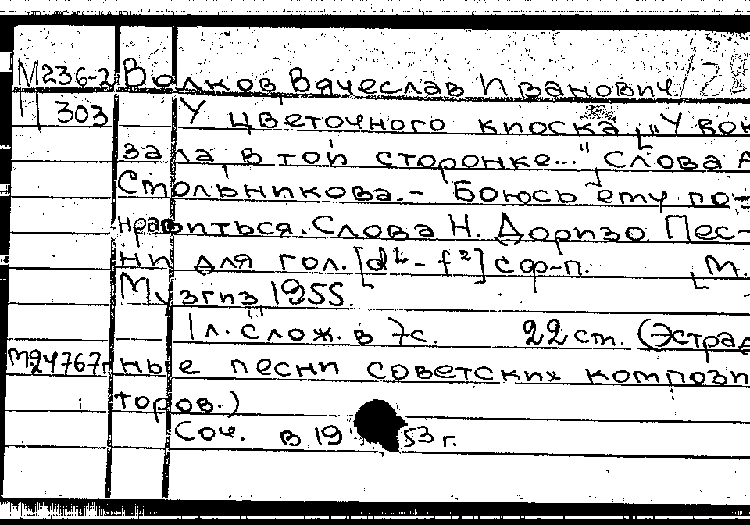 М236-2 Волков Вячеслав Иванович
303 У цветочного киоска ["У вок
зала в той сторонке..." Слова А
Стольникова.- Боюсь ему по-
нравиться. Слова Н. Доризо Пес-
ни для гол. [d¹-f²] с ф-п. [М.
Музгиз 1955.
1 л. слож. в 7с. 22 cm. (Эстрад
М24767 ные песни советских компози
торов.)
Соч. в 1953 г.